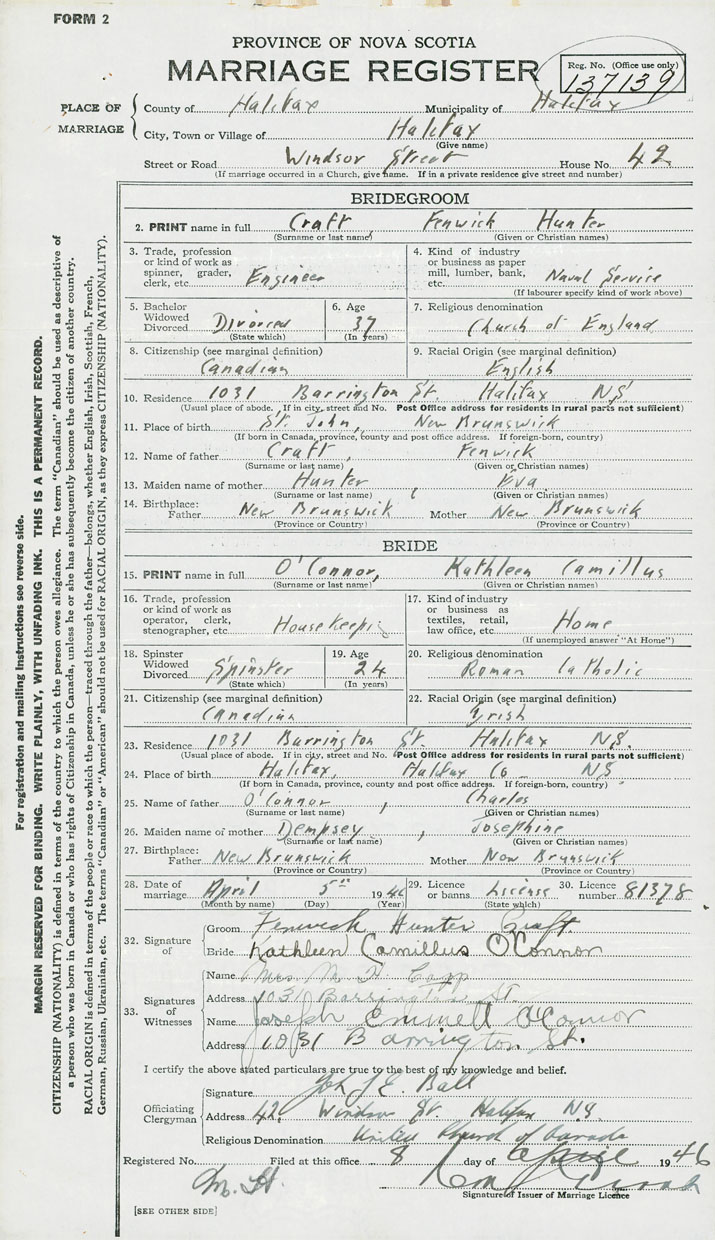 FORM 2
PROVINCE OF NOVA SCOTIA
MARRIAGE REGISTER
Reg. No. (Office use only)
137139
PLACE OF MARRIAGE
County of Halifax Municipality of Halifax
City, Town or Village of Halifax
(Give name)
Street or Road Windsor Street House No. 42
(If marriage occurred in a Church, give name. If in a private residence give street and number)
BRIDEGROOM
2. PRINT name in full Craft Fenwick Hunter
(Surname or last name) (Given or Christian names)
3. Trade, profession or kind of work as spinner, grader, clerk, etc. Engineer
4. Kind of industry or business as paper mill, lumber, bank, etc. Naval Service
(If labourer specify kind of work above)
5. Bachelor Widowed Divorced Divorced
(State which)
6. Age 37
(In years)
7. Religious denomination Church of England
8. Citizenship (see marginal definition) Canadian
9. Racial Origin (see marginal definition) English
10. Residence 1031 Barrington St. Halifax NS
(Usual place of abode. If in city, street and No. Post Office address for residents in rural parts not sufficient)
11. Place of birth St. John, New Brunswick
(If born in Canada, province, county and post office address. If foreign-born, country)
12. Name of father Craft, Fenwick
(Surname or last name) (Given or Christian names)
13. Maiden name of mother Hunter, Eva
(Surname or last name) (Given or Christian names)
14. Birthplace: Father New Brunswick Mother New Brunswick
(Province or Country) (Province or Country)
BRIDE
15. PRINT name in full O'Connor, Kathleen Camillus
(Surname or last name) (Given or Christian names)
16. Trade, profession or kind of work as operator, clerk, stenographer, etc. Housekeeping
17. Kind of industry or business as textiles, retail, law office, etc. Home
(If unemployed answer "At Home")
18. Spinster Widowed Divorced Spinster
(State which)
19. Age 24
(In years)
20. Religious denomination Roman Catholic
21. Citizenship (see marginal definition) Canadian
22. Racial Origin (see marginal definition) Irish
23. Residence 1031 Barrington St. Halifax NS.
(Usual place of abode. If in city, street and No. Post Office address for residents in rural parts not sufficient)
24. Place of birth Halifax, Halifax Co NS
(If born in Canada, province, county and post office address. If foreign-born, country)
25. Name of father O'Connor, Charles
(Surname or last name) (Given or Christian names)
26. Maiden name of mother Dempsey, Josephine
(Surname or last name) (Given or Christian names)
27. Birthplace: Father New Brunswick Mother New Brunswick
(Province or Country) (Province or Country)
28. Date of marriage April 5th 1946
(Month by name) (Day) (Year)
29. Licence or banns License
(State which)
30. Licence number 81378
32. Signature of
Groom Fenwick Hunter Craft
Bride Kathleen Camillus O'Connor
33. Signatures of Witnesses
Name Mrs. M H Copp
Address 1031 Barrington St.
Name Joseph Emmett O'Connor
Address 1031 Barrington St.
I certify the above stated particulars are true to the best of my knowledge and belief.
Officiating Clergyman
Signature J. E. Ball
Address 42 Windsor St. Halifax NS
Religious Denomination United Church of Canada
Registered No. Filed at this office 8 day of April 1946
M. H.
Signature of Issuer of Marriage Licence
[SEE OTHER SIDE]
For registration and mailing instructions see reverse side.
MARGIN RESERVED FOR BINDING. WRITE PLAINLY, WITH UNFADING INK. THIS IS A PERMANENT RECORD.
CITIZENSHIP (NATIONALITY) is defined in terms of the country to which the person owes allegiance. The term "Canadian" should be used as descriptive of
a person who was born in Canada or who has rights of Citizenship in Canada, unless he or she has subsequently become the citizen of another country.
RACIAL ORIGIN is defined in terms of the people or race to which the person—traced through the father—belongs, whether English, Irish, Scottish, French,
German, Russian, Ukrainian, etc. The terms "Canadian" or "American" should not be used for RACIAL ORIGIN, as they express CITIZENSHIP (NATIONALITY).